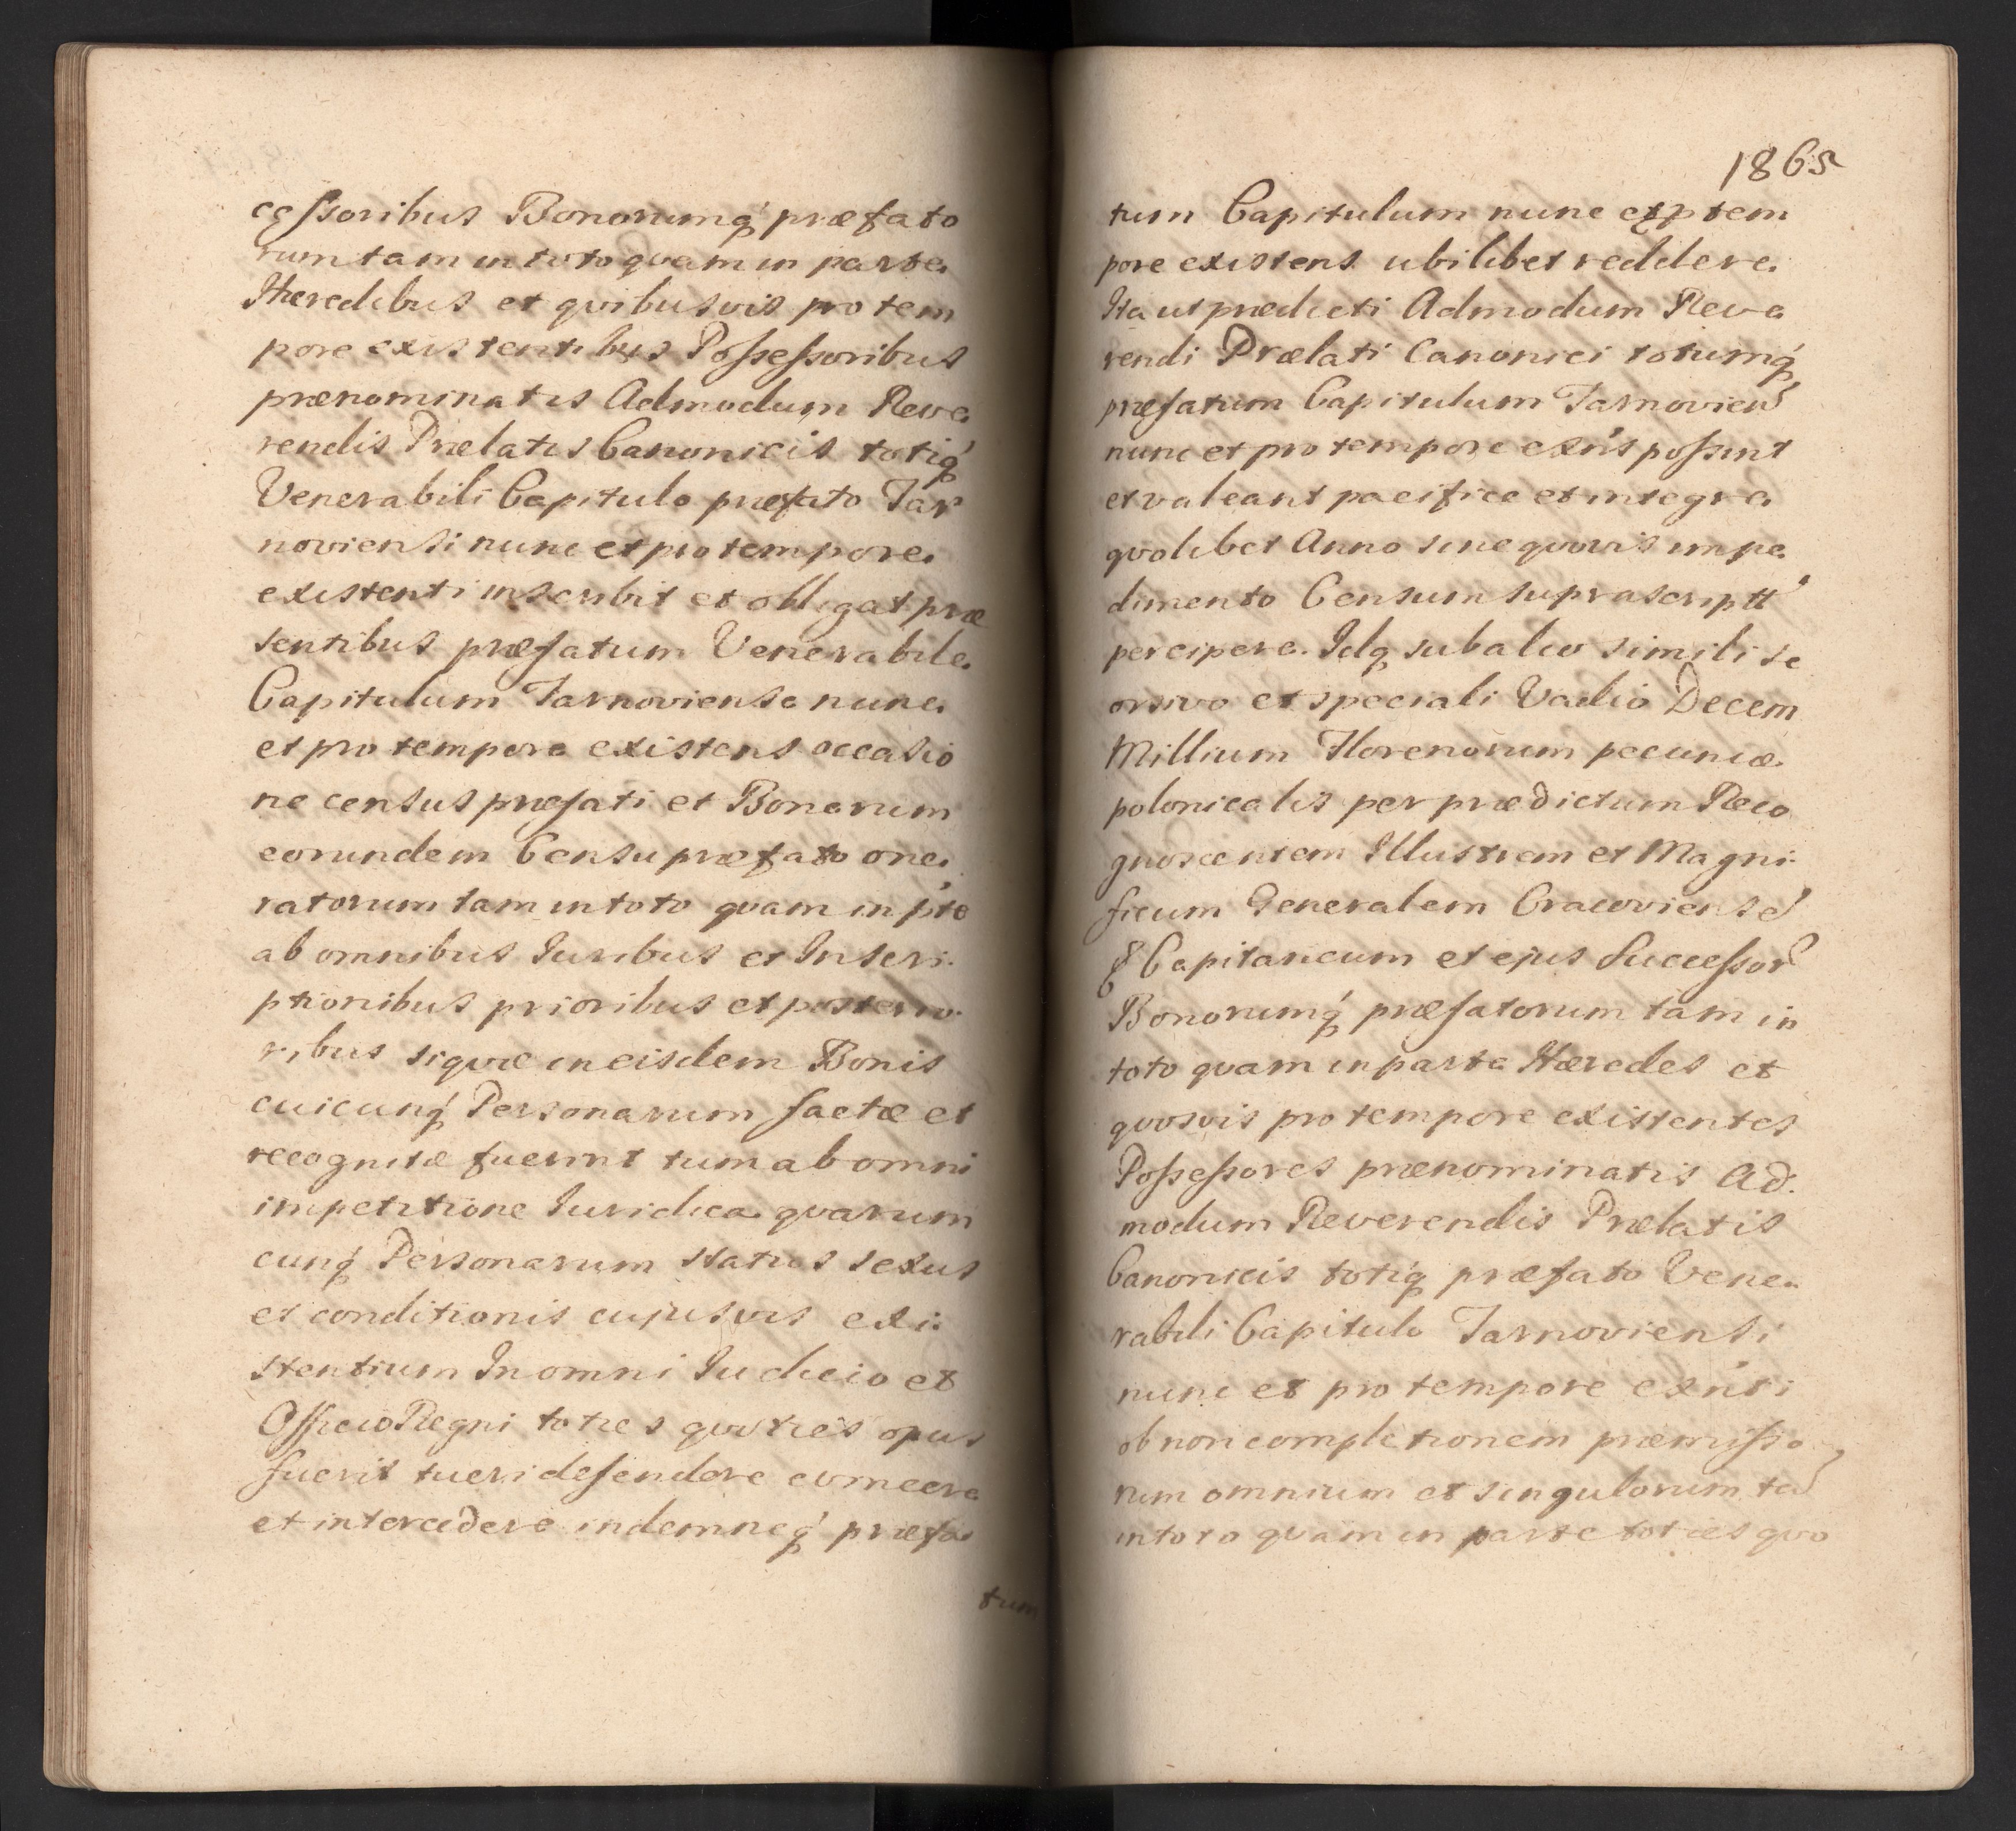 cessoribus Bonorumq́ præfato
rum tam in toto quam in parte
Hæredibus et quibusvis pro tem
pore existentibus Possessoribus
prænominatis Admodum Reve
rendis Prælatis Canonicis totiq́
Venerabili Capitulo præfato Tar
noviensi nunc et pro tempore
existenti inscribit et obligat præ
sentibus præfatum Venerabile
Capitulum Tarnoviense nunc
et pro tempore existens occasio
ne census præfati et Bonorum
eorundem Censu præfato one
ratorum tam in toto quam in pte
ab omnibus Iuribus et Inscri
ptionibus prioribus et posterio
ribus siquæ in eisdem Bonis
cuicunq́ Personarum factæ et
recognitæ fuerint tum ab omni
impetitione Iuridica quarum
cunq́ Personarum status sexus
et conditionis cujusvis exi
stentium In omni Iudicio et
Officio Regni toties quoties opus
fuerit tueri defendere evincere
et intercedere indemneq́ præfa
tum
1865
tum Capitulum nunc et p tem
pore existens ubilibet reddere
Ita ut prædicti Admodum Reve
rendi Prælati Canonici totumq́
præfatum Capitulum Tarnovien
nunc et pro tempore exñs possint
et valeant pacifice et integre
quolibet Anno sine quovis impe
dimento Censum suprascriptt
percipere. Idq sub alio simili se
orsivo et speciali Vadio Decem
Millium Florenorum pecuniæ
polonicalis per prædictum Reco
gnoscentem Illustrem et Magni
ficum Generalem Cracoviensē
Capitaneum et ejus Successor
Bonorumq́ præfatorum tam in
toto quam in parte Hæredes et
quosvis pro tempore existentes
Possessores prænominatis Ad
modum Reverendis Prælatis
Canonicis totiq præfato Vene
rabili Capitulo Tarnoviensi
nunc et pro tempore exñti
ob non completionem præmisso
rum omnium et singulorum ta
in toto quam in parte toties quo